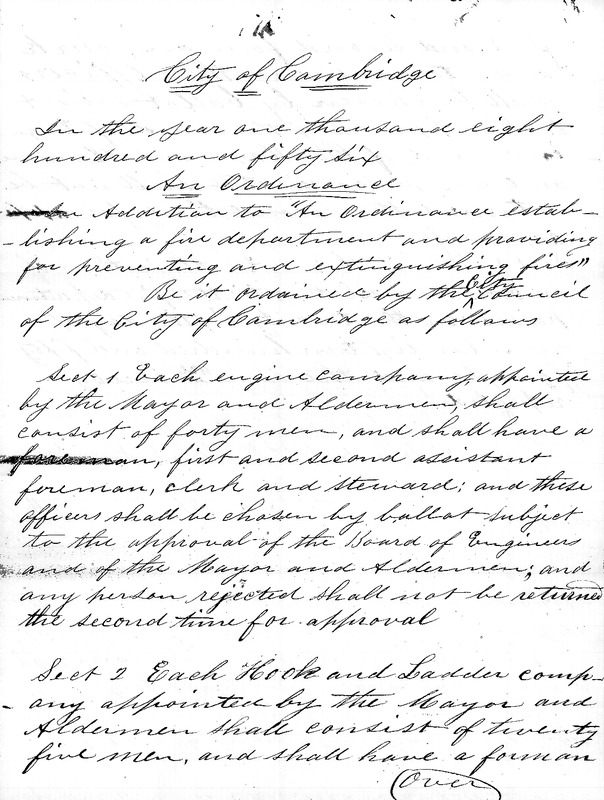 City of Cambridge
In the year one thousand eight
hundred and fifty six
An Ordinance
In Addition to "An Ordinance estab-
-lishing a fire department and providing
for preventing and extinguishing fires"
Be it ordained by the City Council
of the City of Cambridge as follows
Sect 1 Each engine company, appointed
by the Mayor and Aldermen, shall
consist of forty men, and shall have a
foreman, first and second assistant
foreman, clerk and steward; and these
officers shall be chosen by ballot subject
to the approval of the Board of Engineers
and of the Mayor and Aldermen; and
any person rejected shall not be returned
the second time for approval
Sect 2 Each Hook and Ladder comp-
-any appointed by the Mayor and
Aldermen shall consist of twenty
five men, and shall have a forman
Over